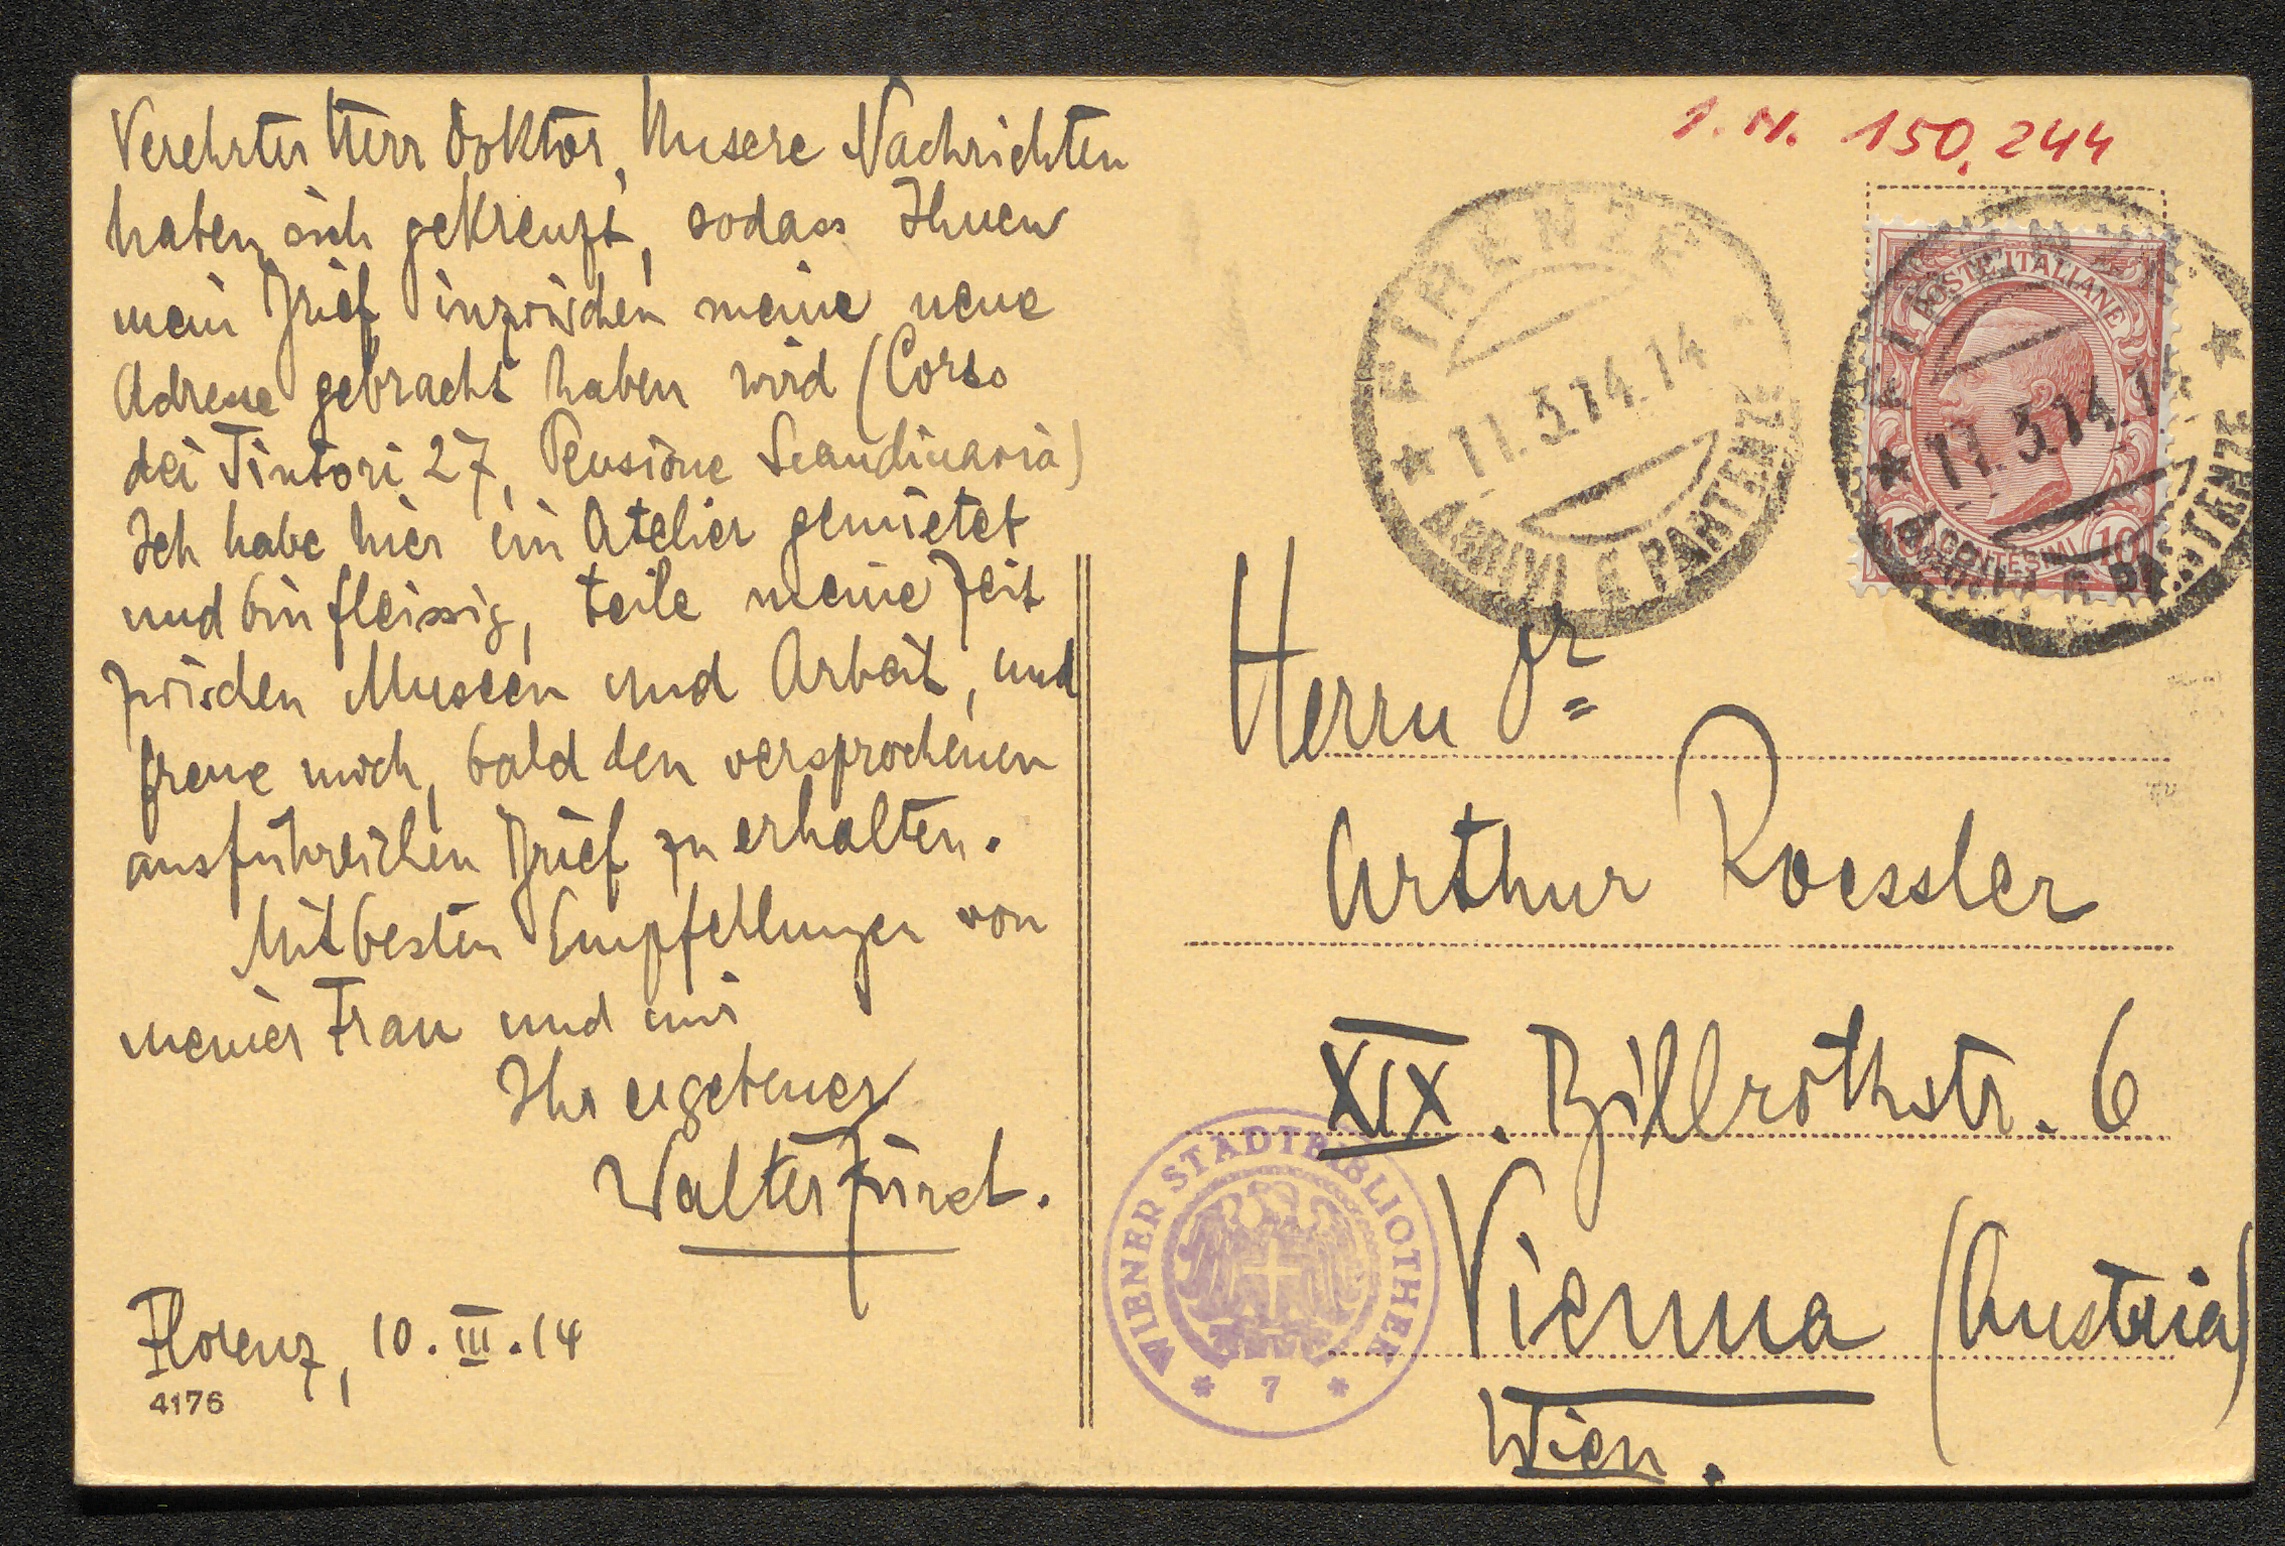 Verehrter Herr Doktor, Unsere Nachrichten
haben sich gekreuzt, sodass Ihnen
mein Brief inzwischen meine neue
Adresse gebracht haben wird (Corso
dei Tintori 27, Pensione Scandinavia)
Ich habe hier ein Atelier gemietet
und bin fleissig, teile meine Zeit
zwischen Museen und Arbeit, und
freue mich, bald den versprochenen
ausführlichen Brief zu erhalten.
Mit besten Empfehlungen von
meiner Frau und mir
Ihr ergebener
Walter Fürst.
Florenz, 10.III.14
4176
I.N. 150,244
FIRENZE
* 11.3.14.14
ARRIVI E PARTENZE
POSTE ITALIANE
10 CENTESIMI 10
FIRENZE
* 11.3.14.14 *
ARRIVI E PARTENZE
Herrn Dr
Arthur Roessler
XIX. Billrothstr. 6
Vienna (Austria)
Wien.
WIENER STADTBIBLIOTHEK
* 7 *